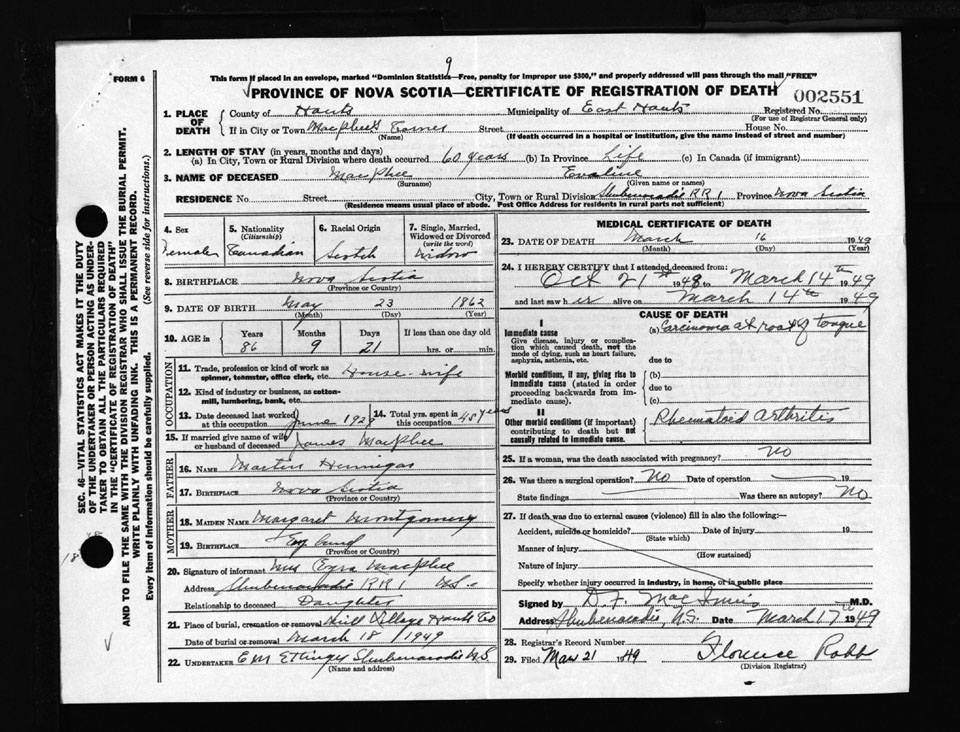 9
FORM 6
This form if placed in an envelope, marked "Dominion Statistics—Free, penalty for improper use $300," and properly addressed will pass through the mail "FREE"
PROVINCE OF NOVA SCOTIA—CERTIFICATE OF REGISTRATION OF DEATH
002551
1. PLACE OF DEATH
County of Hants Municipality of East Hants Registered No.
(For use of Registrar General only)
If in City or Town MacPhee's Corner Street House No.
(Name) (If death occurred in a hospital or institution, give the name instead of street and number)
2. LENGTH OF STAY (in years, months and days)
(a) In City, Town or Rural Division where death occurred 60 years (b) In Province Life (c) In Canada (if immigrant)
3. NAME OF DECEASED MacPhee Evaline
(Surname) (Given name or names)
RESIDENCE No. Street City, Town or Rural Division Shubenacadie RR 1 Province Nova Scotia
(Residence means usual place of abode. Post Office Address for residents in rural parts not sufficient)
4. Sex
Female
5. Nationality
(Citizenship)
Canadian
6. Racial Origin
Scotch
7. Single, Married, Widowed or Divorced
(write the word)
Widow
8. BIRTHPLACE Nova Scotia
(Province or Country)
9. DATE OF BIRTH May 23 1862
(Month) (Day) (Year)
10. AGE in
Years Months Days If less than one day old
86 9 21 hrs. or min.
OCCUPATION
11. Trade, profession or kind of work as
spinner, teamster, office clerk, etc. House-wife
12. Kind of industry or business, as cotton-
mill, lumbering, bank, etc.
13. Date deceased last worked
at this occupation June 1928
14. Total yrs. spent in
this occupation 45 years
15. If married give name of wife
or husband of deceased James MacPhee
FATHER
16. Name Martin Hennigar
17. Birthplace Nova Scotia
(Province or Country)
MOTHER
18. Maiden Name Margaret Montgomery
19. Birthplace England
(Province or Country)
20. Signature of informant Mrs Ezra MacPhee
Address Shubenacadie RR 1 N.S.
Relationship to deceased Daughter
21. Place of burial, cremation or removal Mill Village Hants Co
Date of burial or removal March 18 / 1949
22. UNDERTAKER E M Ettinger Shubenacadie N.S.
(Name and address)
MEDICAL CERTIFICATE OF DEATH
23. DATE OF DEATH March 16 1949
(Month) (Day) (Year)
24. I HEREBY CERTIFY that I attended deceased from:
Oct 21st 1948 to March 14th 1949
and last saw her alive on March 14th 1949
CAUSE OF DEATH
I
Immediate cause
Give disease, injury or complication which caused death, not the mode of dying, such as heart failure, asphyxia, asthenia, etc.
(a) Carcinoma at root of tongue
due to
Morbid conditions, if any, giving rise to immediate cause (stated in order proceeding backwards from immediate cause).
(b)
due to
(c)
II
Other morbid conditions (if important) contributing to death but not causally related to immediate cause.
Rheumatoid Arthritis
25. If a woman, was the death associated with pregnancy? No
26. Was there a surgical operation? No Date of operation 19
State findings Was there an autopsy? No
27. If death was due to external causes (violence) fill in also the following:
Accident, suicide or homicide? Date of injury 19
(State which)
Manner of injury
(How sustained)
Nature of injury
Specify whether injury occurred in industry, in home, or in public place
Signed by D. F. MacInnis M.D.
Address Shubenacadie, N.S. Date March 17th 1949
28. Registrar's Record Number
29. Filed Mar 21 1949 Florence Robb
(Division Registrar)
SEC. 46—VITAL STATISTICS ACT MAKES IT THE DUTY
OF THE UNDERTAKER OR PERSON ACTING AS UNDER-
TAKER TO OBTAIN ALL THE PARTICULARS REQUIRED
IN THE "CERTIFICATE OF REGISTRATION OF DEATH"
AND TO FILE THE SAME WITH THE DIVISION REGISTRAR WHO SHALL ISSUE THE BURIAL PERMIT.
WRITE PLAINLY WITH UNFADING INK. THIS IS A PERMANENT RECORD.
Every item of information should be carefully supplied. (See reverse side for instructions.)
18